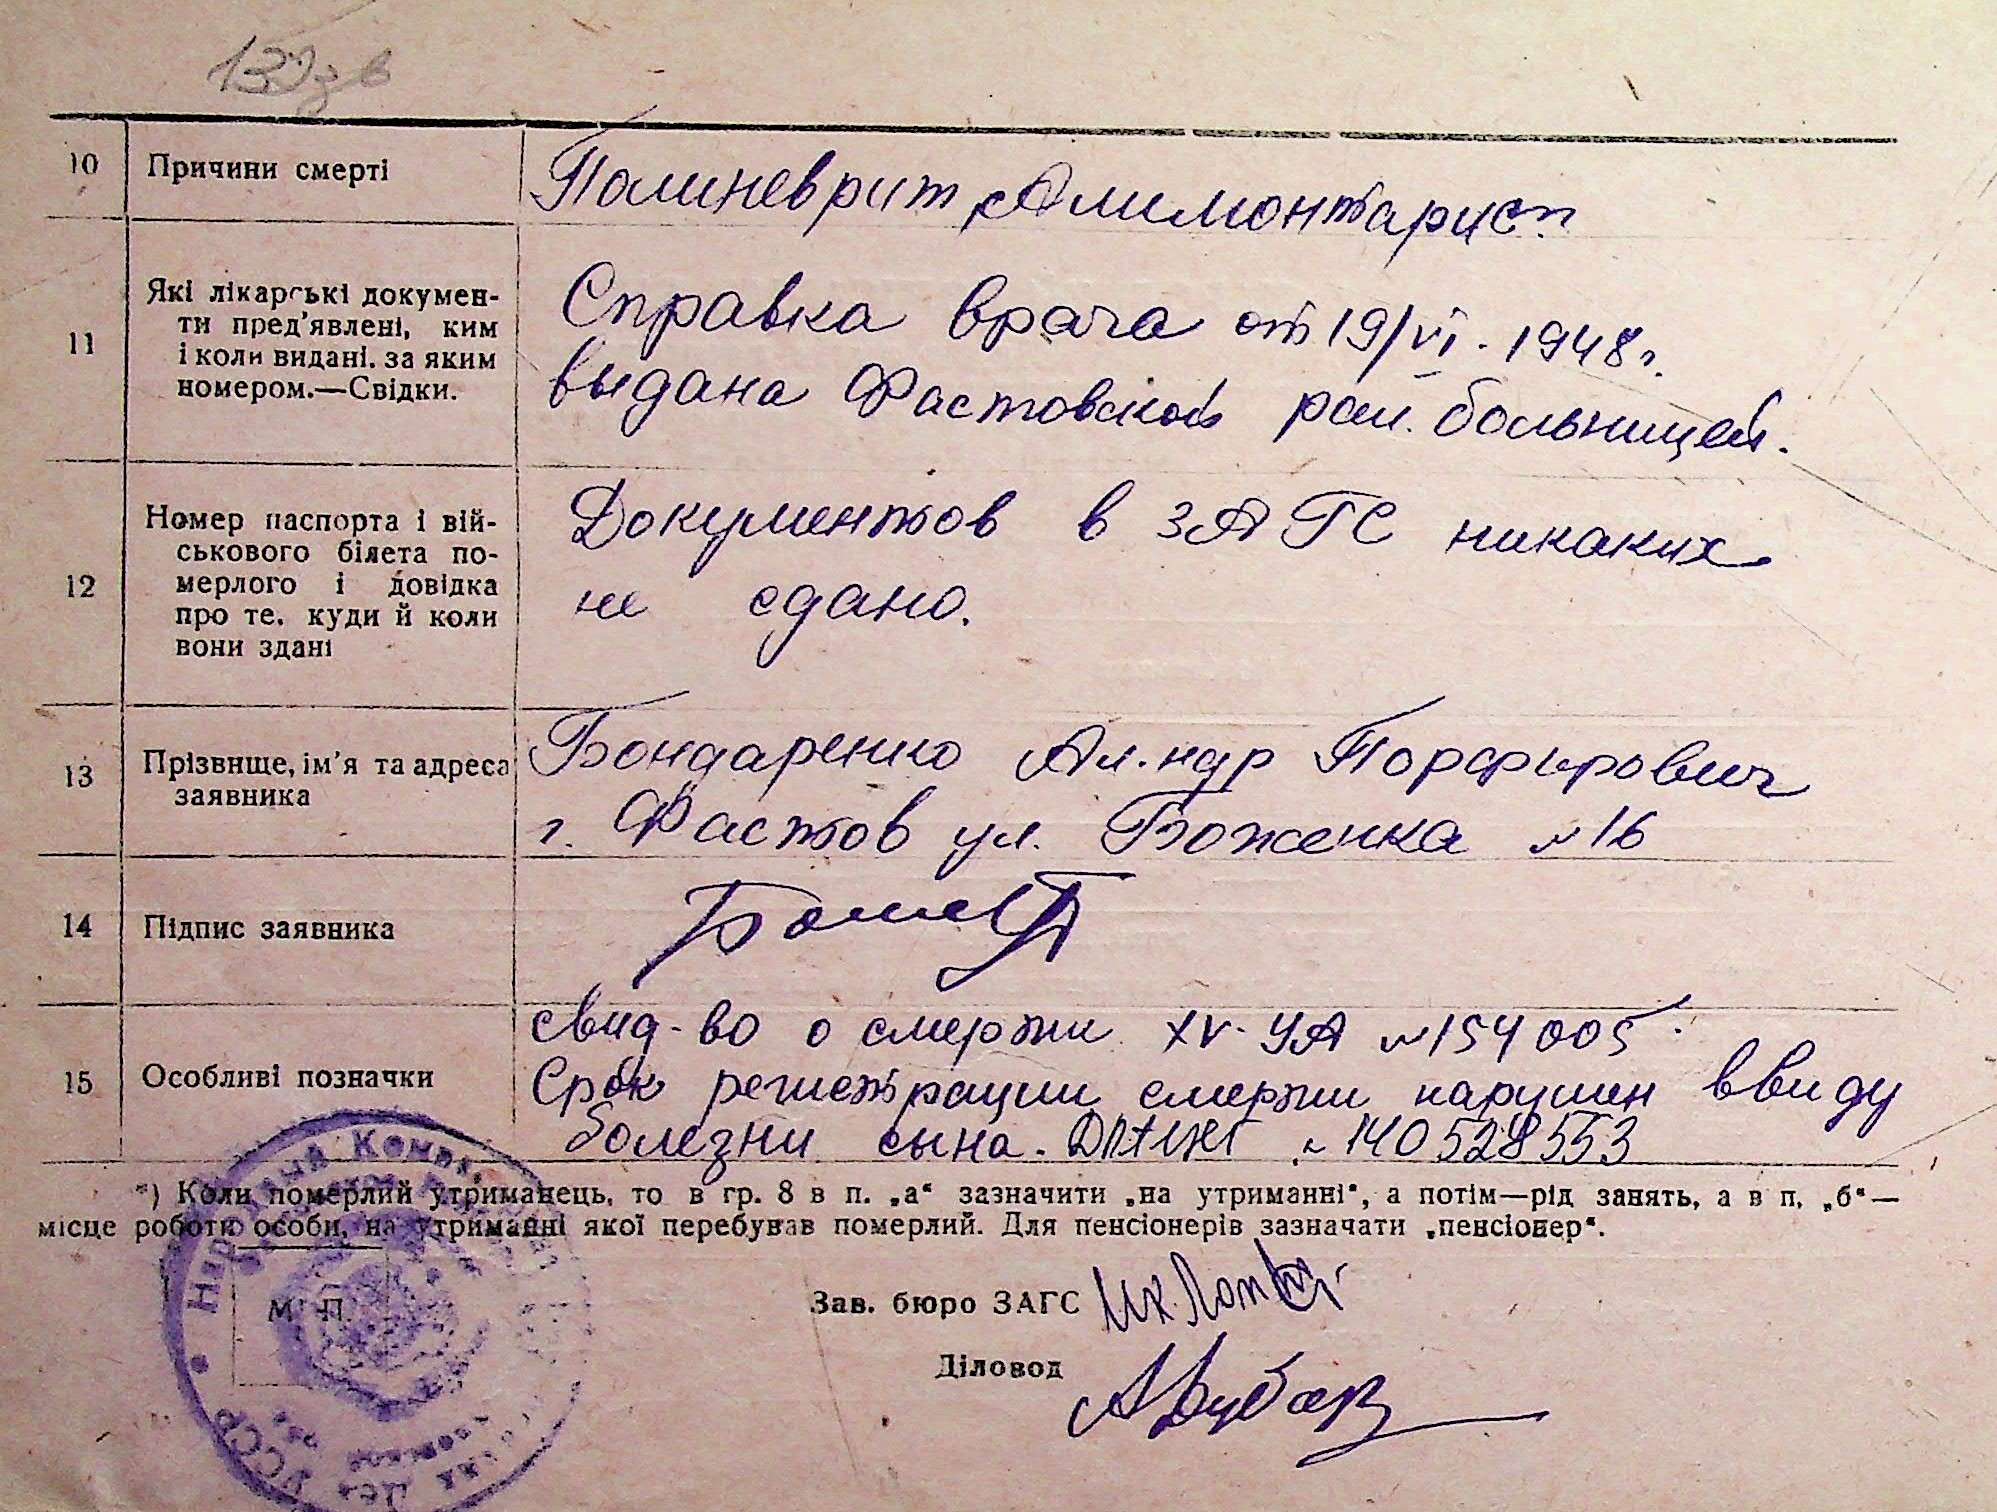 139зв
10 Причини смерті Полиневрит, Алиментарист.
11 Які лікарські докумен-
ти пред'явлені, ким
і коли видані. за яким
номером.—Свідки.
Справка врача от 19/VI. 1948 г.
выдана Фастовской рай. больницей.
12 Номер паспорта і вій-
ськового білета по-
мерлого і довідка
про те, куди й коли
вони здані
Документов в ЗАГС никаких
не сдано.
13 Прізвище, ім'я та адреса
заявника
Бондаренко Ал.ндр Порфирович
г. Фастов ул. Боженка № 16
14 Підпис заявника
15 Особливі позначки
Свид-во о смерти XV-УА № 154005.
Срок регистрации смерти нарушен ввиду
болезни сына. № 140528553
*) Коли померлий утриманець, то в гр. 8 в п. „а“ зазначити „на утриманні“, а потім—рід занять, а в п. „б“—
місце роботи особи, на утриманні якої перебував померлий. Для пенсіонерів зазначати „пенсіонер“.
М. П.
Зав. бюро ЗАГС
Діловод
УССР